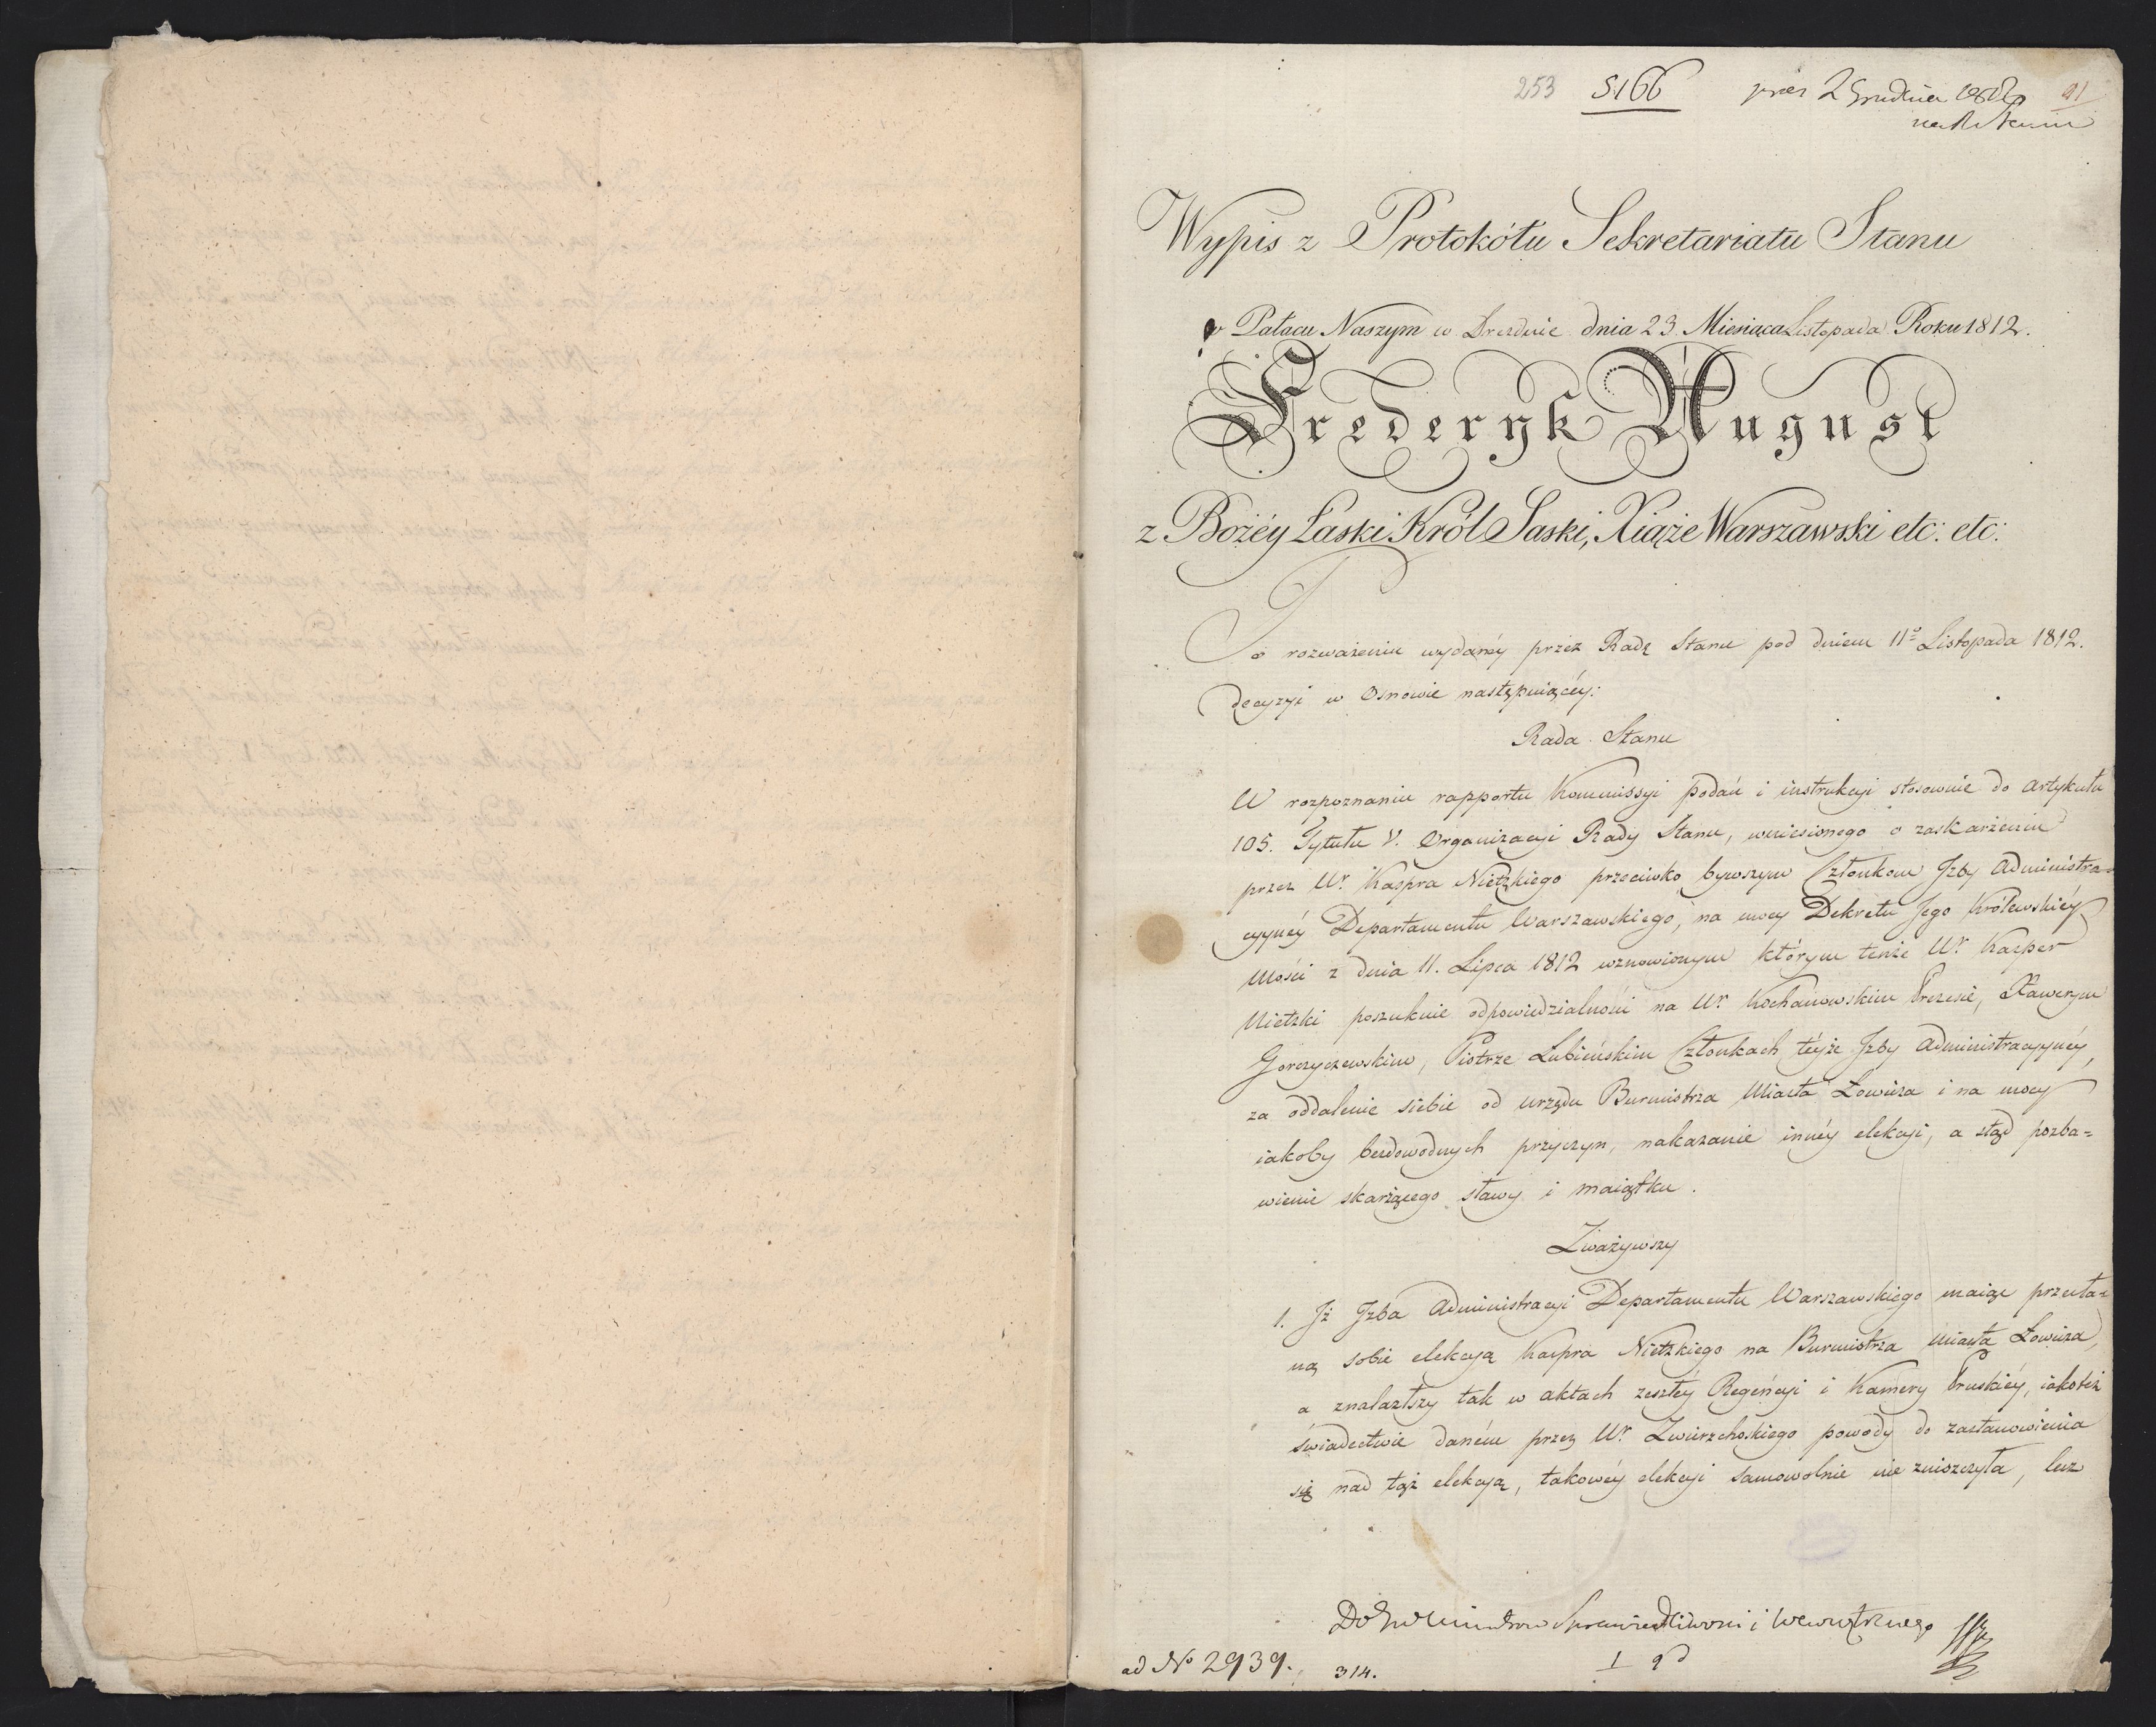 253 5166 prez 2 Grudnia 1812 91
Wypis z Protokółu Sekretariatu Stanu
w Pałacu Naszym w Dreźnie dnia 23 Miesiąca Listopada Roku 1812.
Frederyk August
z Bożéy Łaski Król Saski, Xiąże Warszawski etc: etc:
Po rozważeniu wydanéy przez Radę Stanu pod dniem 11º Listopada 1812.
decyzyi w Osnowie następuiącéy:
Rada Stanu
W rozpoznaniu rapportu Kommissyi podań i instrukcyi stosownie do artykułu
105. Tytułu V. Organizacyi Rady Stanu, wniesionego o zaskarżeniu
przez Ur. Kaspra Nietzkiego przeciwko bywszym Członkom Jzby Administra=
cyynéy Departamentu Warszawskiego, na mocy Dekretu Jego Królewskiéy
Mości z dnia 11. Lipca 1812 wznowionym którym tenże Ur. Kacper
Nietzki poszukuie odpowiedzialności na Ur. Kochanowskim Prezesie, Xawerym
Gorzyczewskim, Piotrze Lubieńskim Członkach téyże Jzby Administracyynéy,
za oddalenie siebie od urzędu Burmistrza Miasta Łowicza i na mocy
iakoby bezdowodnych przyczyn, nakazanie innéy elekcyi, a stąd pozba=
wienie skarżącego sławy i maiątku.
Zważywszy
1. Jż Jzba Administracyi Departamentu Warszawskiego maiąc przesła=
ną sobie elekcyą Kacpra Nietzkiego na Burmistrza miasta Łowicza,
a znalazłszy tak w aktach zeszłéy Regencyi i Kamery Pruskiéy, iakoteż
świadectwie daném przez Ur. Zwierzchoskiego powody do zastanowienia
się nad tąż elekcyą, takowéy elekcyi samowolnie nie zniszczyła, lecz
Do Ministrow Sprawiedliwosci i Wewnętrznego
ad Nº 2939. 314.